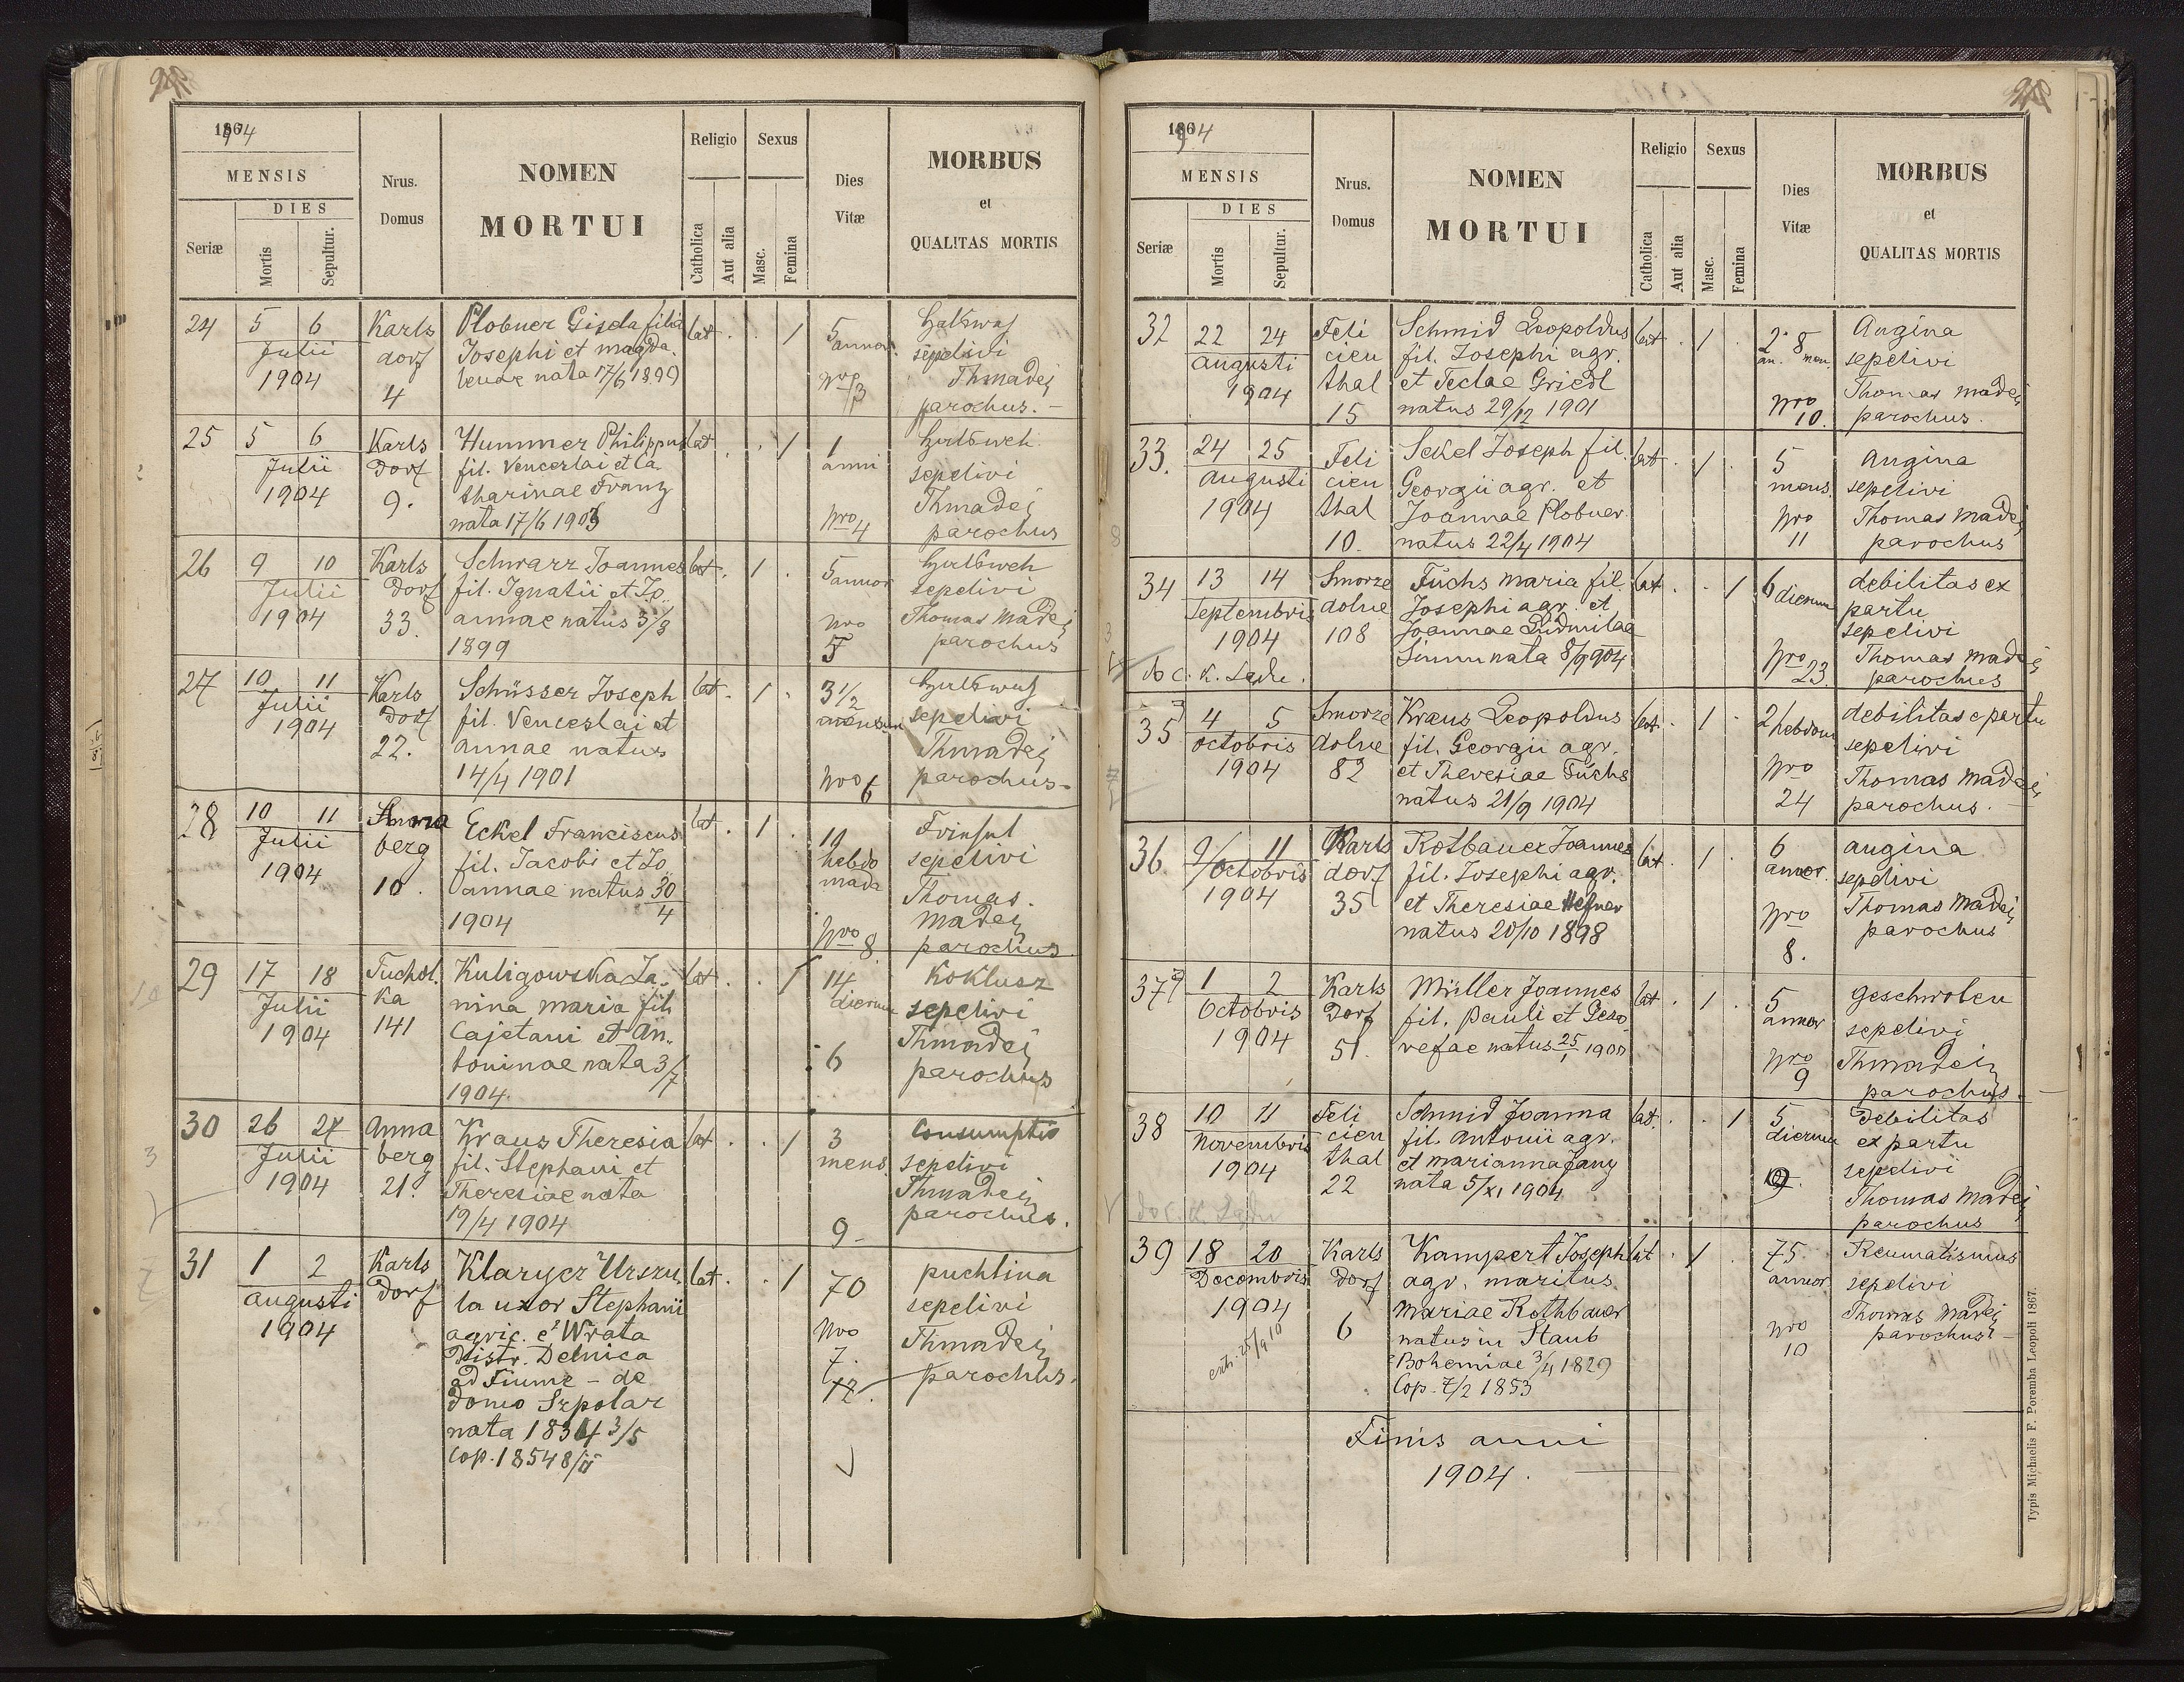 1904
MENSIS
DIES
Seriæ
Mortis
Sepultur.
Nrus.
Domus
NOMEN
MORTUI
Religio
Catholica
Aut alia
Sexus
Masc.
Femina
Dies
Vitæ
MORBUS
et
QUALITAS MORTIS
24 5 6 Karls Plobner Gisela filia lat . . 1 5
Julii dorf Josephi et Magda annor. sepelivi
1904 4 lenae nata 17/6 1899 Nro 3 Thmadej
parochus. –
25 5 6 Karls Hummer Philippus lat . . 1 1 Halsweh
Julii dorf fil. Venceslai et Ca anni sepelivi
1904 9. tharinae Franz Nro 4 Thmadej
nata 17/6 1903 parochus
26 9 10 Karls Schwarz Joannes lat . 1 . 5 Halsweh
Julii dorf fil. Ignatii et Jo annor sepelivi
1904 33. annae natus 3/8 Nro Thomas Madej
1899 5 parochus
27 10 11 Karls Schüsser Joseph lat . 1 . 3 1/2
Julii dorf fil. Venceslai et sepelivi
1904 22. Annae natus Thmadej
14/4 1901 Nro 6 parochus –
28 10 11 Anna Eckel Franciscus lat . 1 . 10
Julii berg fil. Jacobi et Jo hebdo sepelivi
1904 10. annae natus 30/4 mada Thomas
1904 Nro 8. Madej
parochus
29 17 18 Tuchol Kuligowska Ja lat . . 1 14 Koklusz
Julii ka nina Maria fil. dierum sepelivi
1904 141 Cajetani et An Thmadej
toninae nata 3/7 6 parochus
1904.
30 26 27 Anna Kraus Theresia lat . . 1 3 Consumptio
Julii berg fil. Stephani et mens sepelivi
1904 21. Theresiae nata Thmadej
19/4 1904 9. parochus.
31 1 2 Karls Klaryer Ursu lat . . 1 70 puchlina
Augusti dorf la uxor Stephani sepelivi
1904 agric. e Wrata Nro Thmadej
Distr. Delnica 7. parochus.
ad Fiume – de 12.
domo Szpolar
nata 1834 3/5
Cop. 1854 8/II
1904
MENSIS
DIES
Seriæ
Mortis
Sepultur.
Nrus.
Domus
NOMEN
MORTUI
Religio
Catholica
Aut alia
Sexus
Masc.
Femina
Dies
Vitæ
MORBUS
et
QUALITAS MORTIS
32 22 24 Feli Schmid Leopoldus lat . 1 . 2 8 Angina
Augusti cien fil. Josephi agr. an. men. sepelivi
1904 thal et Teclae Griedl Nro Thomas Madej
15 natus 29/12 1901 10. parochus.
33. 24 25 Feli Sekel Joseph fil. lat . 1 . 5 Angina
Augusti cien Georgii agr. et mens. sepelivi
1904 thal Joannae Plobner Nro Thomas Madej
10. natus 22/4 1904 11 parochus
34 13 14 Smorze Fuchs Maria fil. lat . . 1 6 dierum debilitas ex
Septembris dolne Josephi agr. et partu
1904 108 Joannae Ludmilae sepelivi
do c. k. Sądu. Simm nata 8/9 904 Nro 23. Thomas Madej
parochus
35 4 5 Smorze Kraus Leopoldus lat . 1 . 2 hebdom debilitas e partu
Octobris dolne fil. Georgii agr. sepelivi
1904 82 et Theresiae Fuchs Nro Thomas Madej
natus 21/9 1904 24 parochus. –
36. 9 11 Karls Rotbauer Joannes lat . 1 . 6 angina
Octobris dorf fil. Josephi agr. annor. sepelivi
1904 35 et Theresiae Hefner Nro Thomas Madej
natus 20/10 1898 8. parochus
37 1 2 Karls Müller Joannes lat . 1 . 5 geschwolen
Octobris dorf fil. Pauli et Geno annor sepelivi
1904 51. vefae natus 25/1 1900 Nro 9 Thmadej
parochus.
38 10 11 Feli Schmid Joanna lat. . . 1 5 Debilitas
Novembris cien fil. Antonii agr. dierum ex partu
1904 thal et Marianna Jany sepelivi
22 nata 5/XI 1904 Thomas Madej
do c. k. Sądu parochus
39 18 20 Karls Kampert Joseph lat . 1 . 75 Reumatismus
Decembris dorf agr. maritus annor. sepelivi
1904 6 Mariae Rothbauer Nro Thomas Madej
natus in Staub 10 parochus –
Bohemiae 3/4 1829
Cop. 7/2 1853
Finis anni
1904.
Typis Michaelis F. Poremba Leopoli 1867.